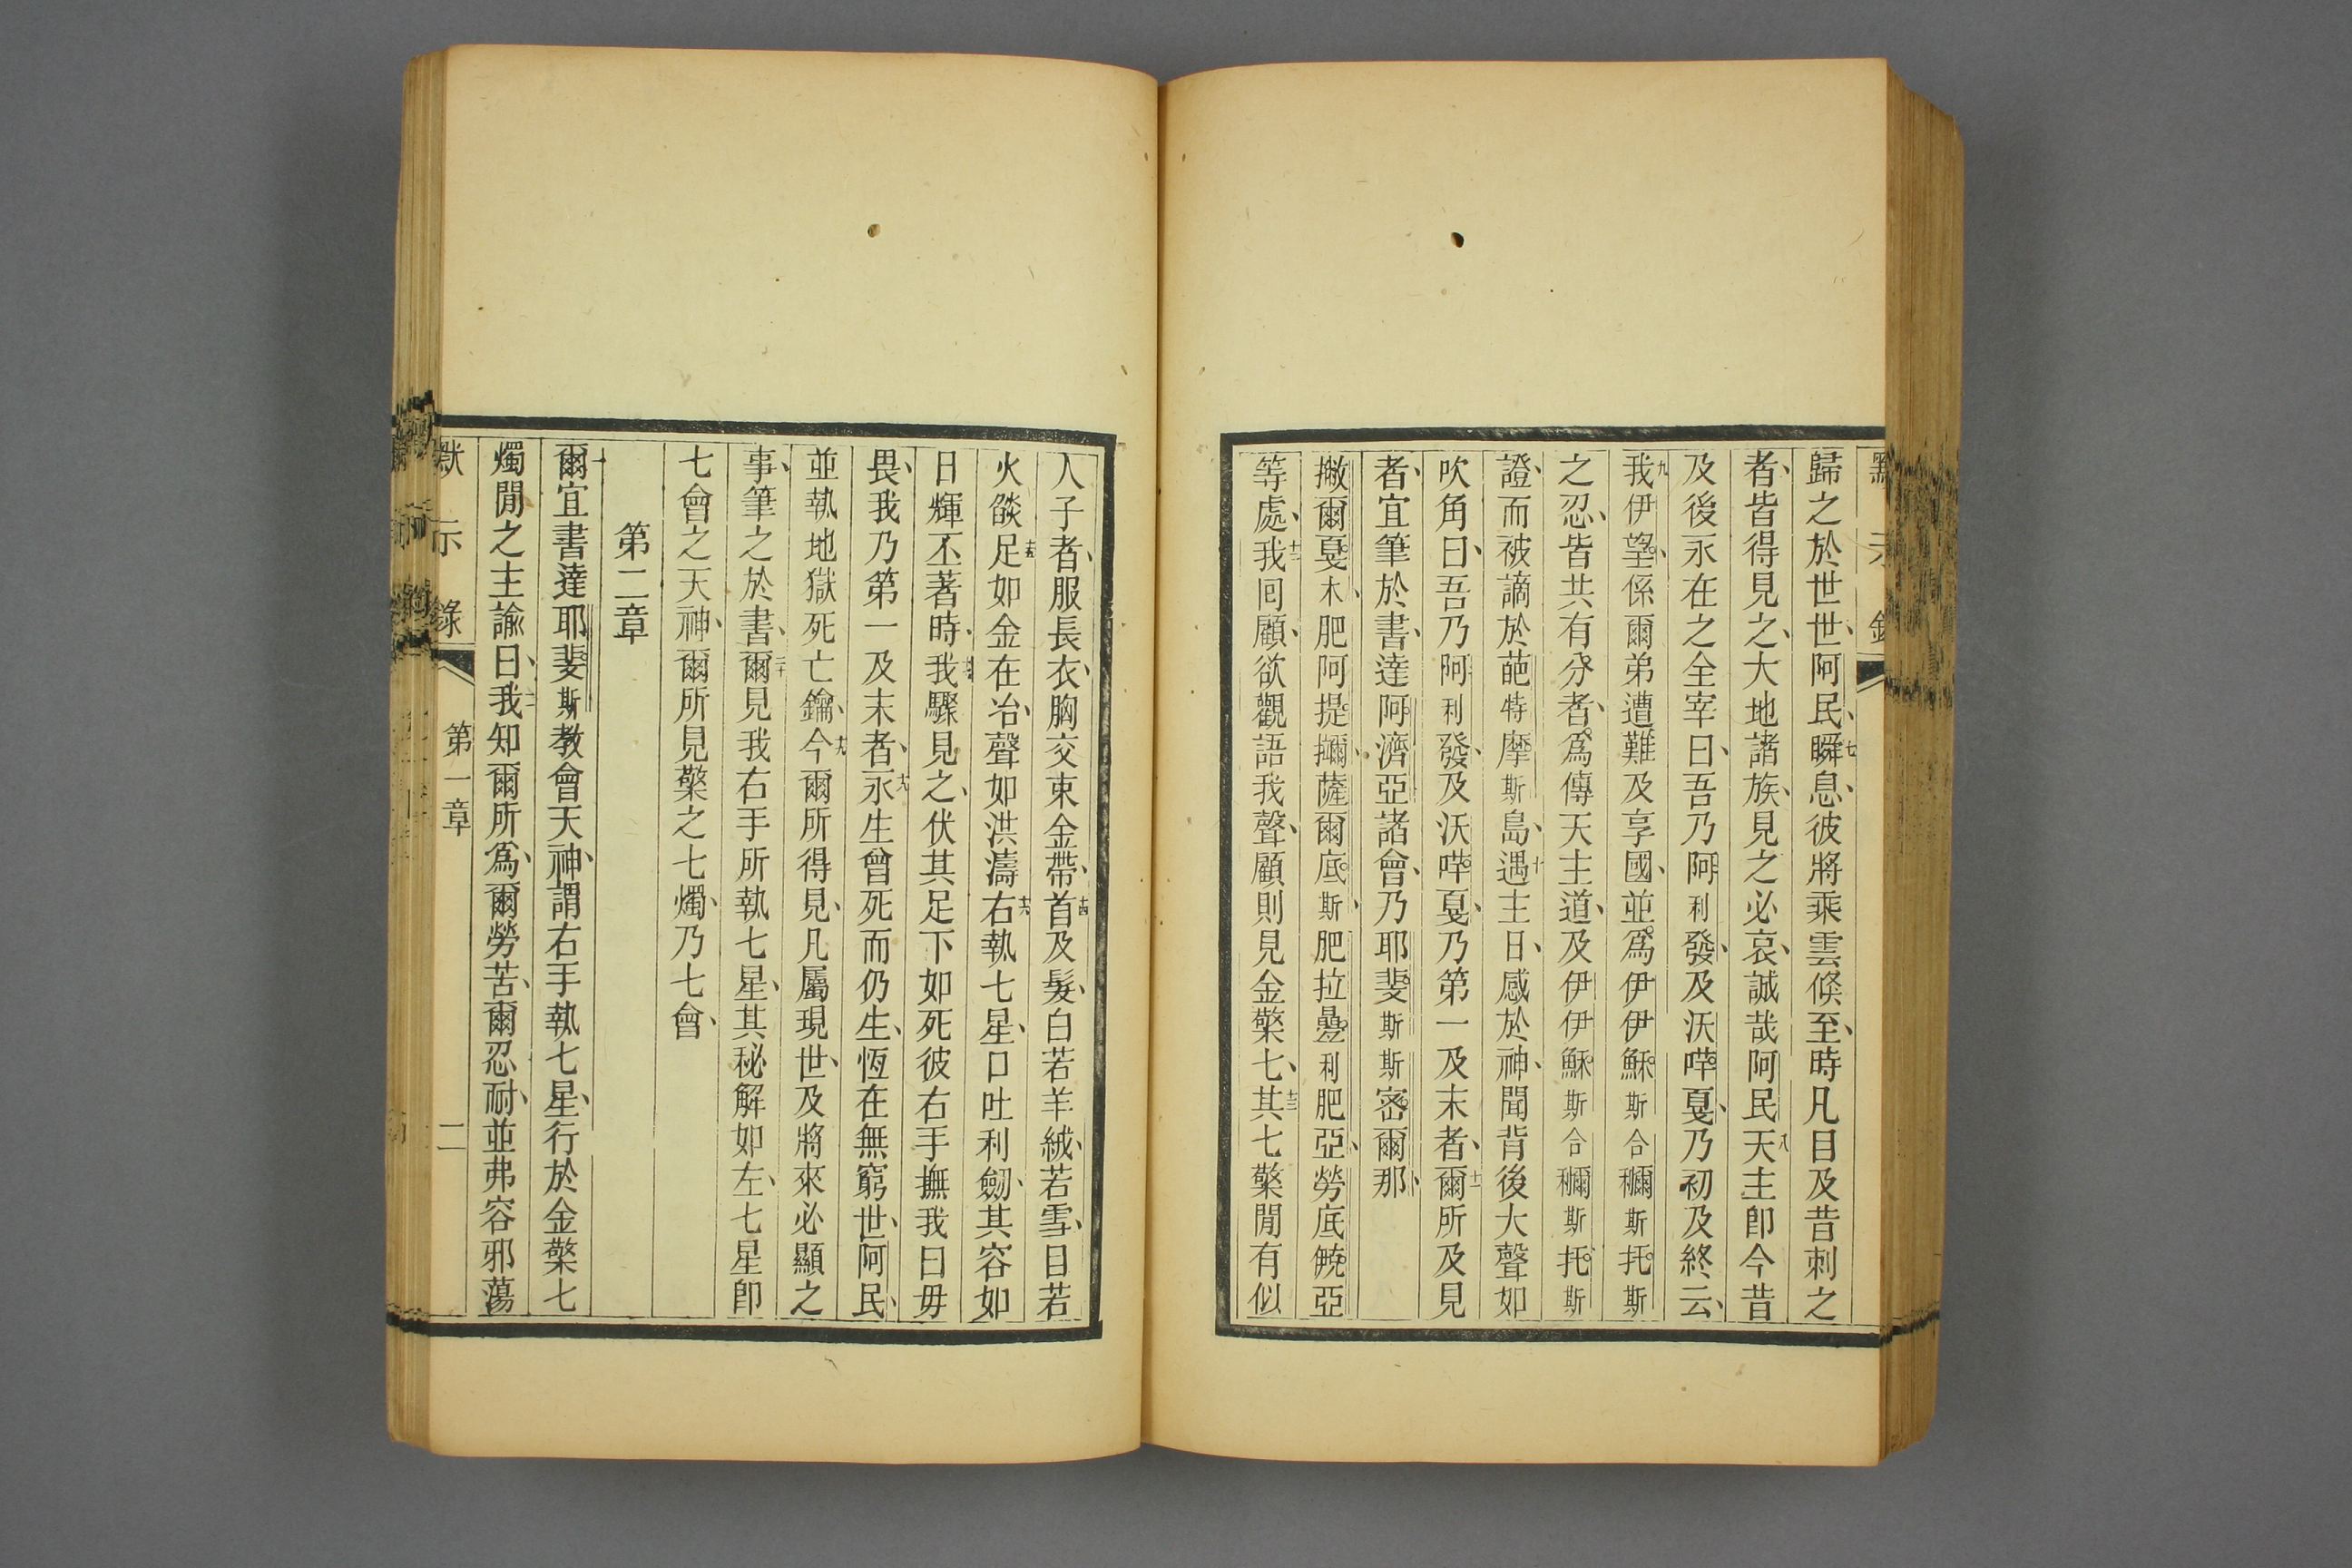 歸之於世世、阿民、七瞬息、彼將乘雲倏至、時凡目及昔刺之
者、皆得見之、大地諸族、見之必哀、誠哉阿民八天主即今昔
及後永在之全宰曰、吾乃阿利發、及沃咩戛、乃初及終云、
九我伊望、係爾弟遭難及享國、並爲伊伊穌斯合穪斯托斯
之忍、皆共有分者、爲傳天主道、及伊伊穌斯合穪斯托斯
證、而被謫於葩特摩斯島、十遇主日、感於神、聞背後大聲如
吹角曰、吾乃阿利發、及沃咩戛、乃第一及末者、十一爾所及見
者、宜筆於書、達阿濟亞諸會、乃耶斐斯斯宻爾那、
撇爾戛木、肥阿提擟薩爾底斯、肥拉疊利肥亞、勞底皢亞
等處、十二我回顧、欲觀語我聲、顧則見金檠七、十三其七檠閒有似
人子者、服長衣、胸交束金帶、十四首及髮、白若羊絨、若雪、目若
火燄十五足如金在冶、聲如洪濤十六右執七星、口吐利劒、其容如
日輝丕著時、十七我驟見之、伏其足下如死彼右手撫我曰毋
畏、我乃第一及末者、十八永生曾死而仍生、恆在無窮世、阿民、
並執地獄死亡鑰、十九今爾所得見、凡屬現世、及將來必顯之
事、筆之於書、二十爾見我右手所執七星、其秘解如左、七星即
七會之天神、爾所見檠之七燭、乃七會、
第二章
一爾宜書達耶斐斯教會天神、謂右手執七星、行於金檠七
燭閒之主諭曰、二我知爾所爲、爾勞苦、爾忍耐、並弗容邪蕩
默示錄
第一章
二